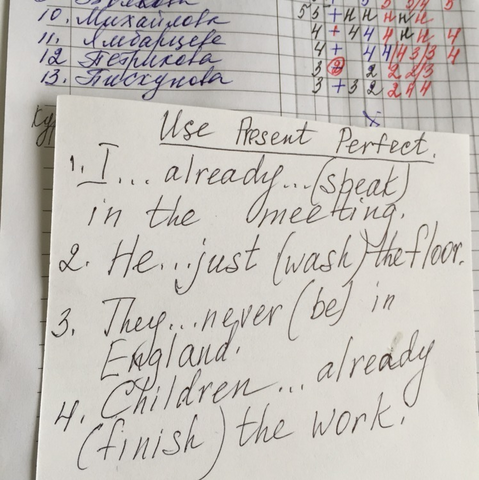 10. Михайлова 55 + н н н н н
11. Ямбарцева 4 + 4 4 4 н н 4
12 Петрикова 4 + 4 4 4 3 3 4
13. Пискунова 3 2 2 2 2 3
3 + 3 2 2 4 4
Use Present Perfect.
1. I... already...(speak)
in the meeting.
2. He...just (wash) the floor.
3. They...never (be) in
England.
4. Children... already
(finish) the work.